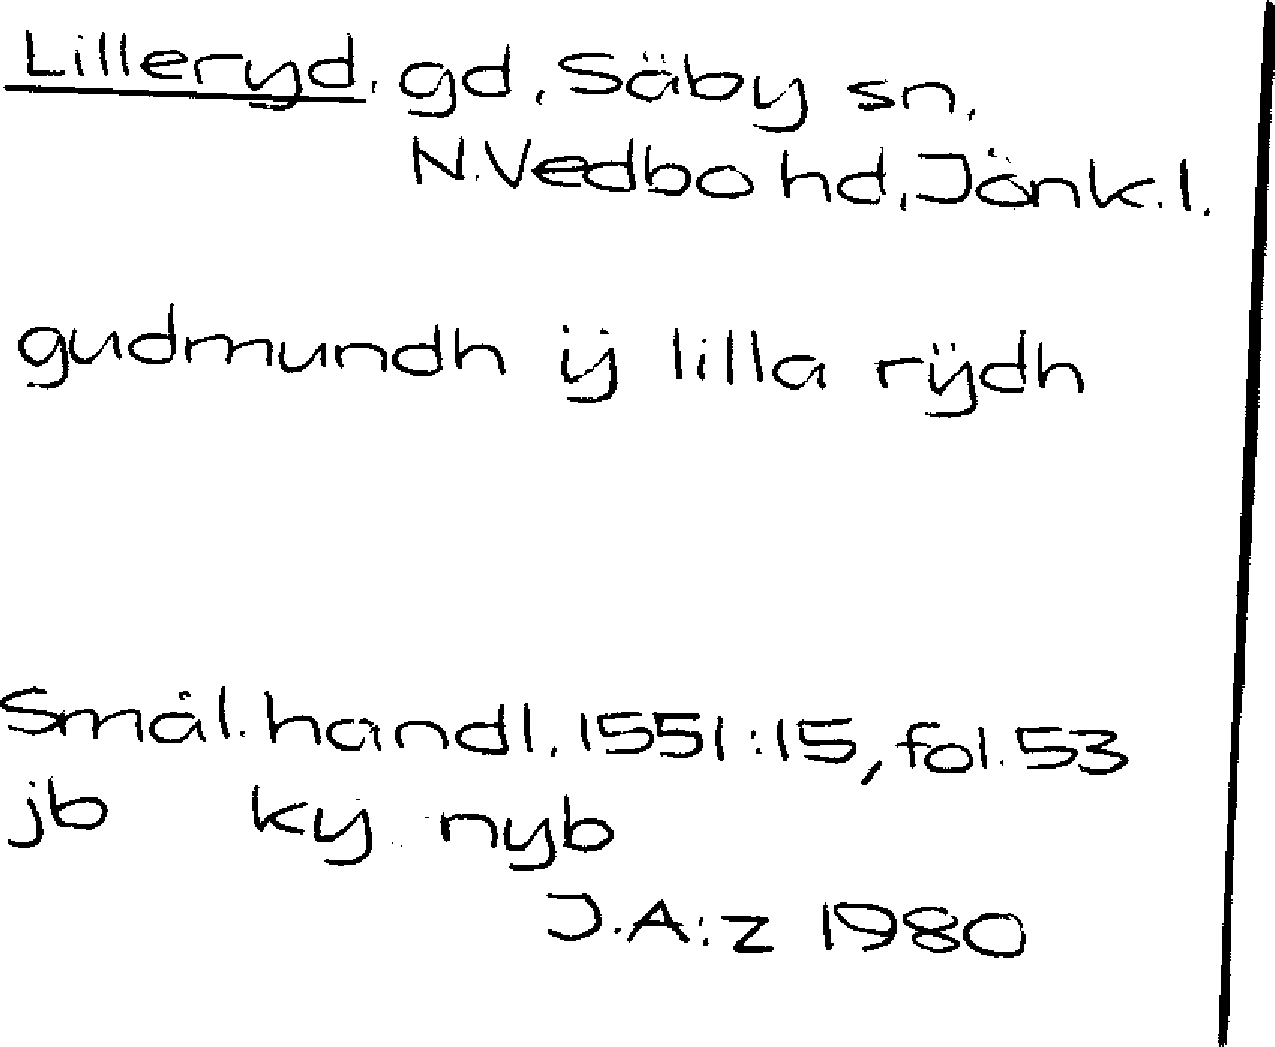 Lilleryd, gd, Säby sn,
N.Vedbo hd, Jönk.l.
gudmundh ij lilla rÿdh
Smål. handl. 1551:15, fol. 53
jb ky nyb
J.A:z 1980